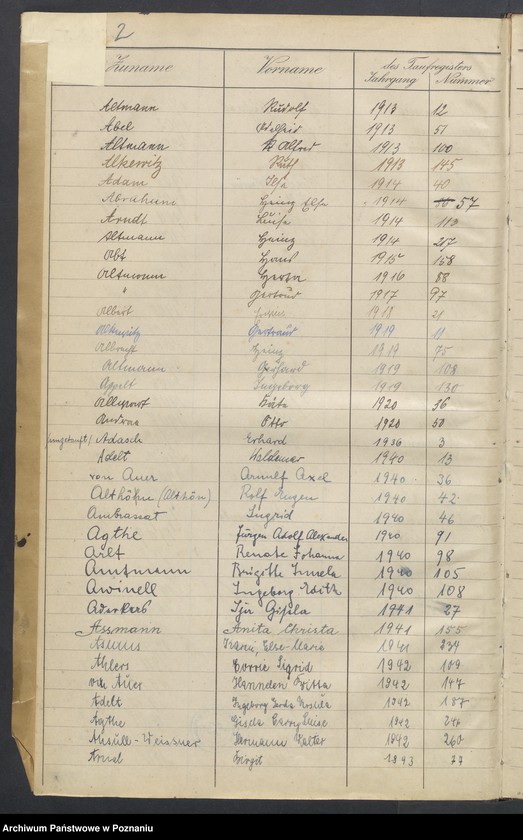 2
Zuname Vorname des Taufregisters
Jahrgang Nummer
Altmann Rudolf 1913 12
Abel 1913 51
Altmann Alfred 1913 100
Alkewitz Ruth 1913 145
Adam Ilse 1914 40
Abraham Heinz 1914 57
Arndt Luise 1914 113
Altmann Heinz 1914 217
Abt Hans 1915 168
Altmann Herta 1916 88
" Gertrud 1917 97
Albert 1918 21
Alkewitz Gertraud 1919 11
Albrecht Heinz 1919 75
Altmann Gerhard 1919 108
Appelt Ingeborg 1919 130
Käte 1920 36
Andreae Otto 1920 50
ungetauft/ Adasch Erhard 1936 3
Adelt Waldemar 1940 13
von Auer Arnulf Axel 1940 36
Althöhn (Althön) Rolf Eugen 1940 42
Ambrassat Ingrid 1940 46
Agthe Jürgen Adolf Alexander 1940 91
Arlt Renate Johanna 1940 98
Amtmann Brigitte 1940 105
Awinell Ingeborg Edith 1940 108
Gisela 1941 27
Assmann Anita Christa 1941 155
Asmus Else-Marie 1941 234
Ahlers Dorrie Sigrid 1942 109
von Auer Britta 1942 147
Adelt Ingeborg Gerda Ursula 1942 187
Agthe Luise 1942
Weissner Hermann Walter 1942 260
Arndt Birgit 1943 77
Archiwum Państwowe w Poznaniu
szukajwarchiwach.gov.pl